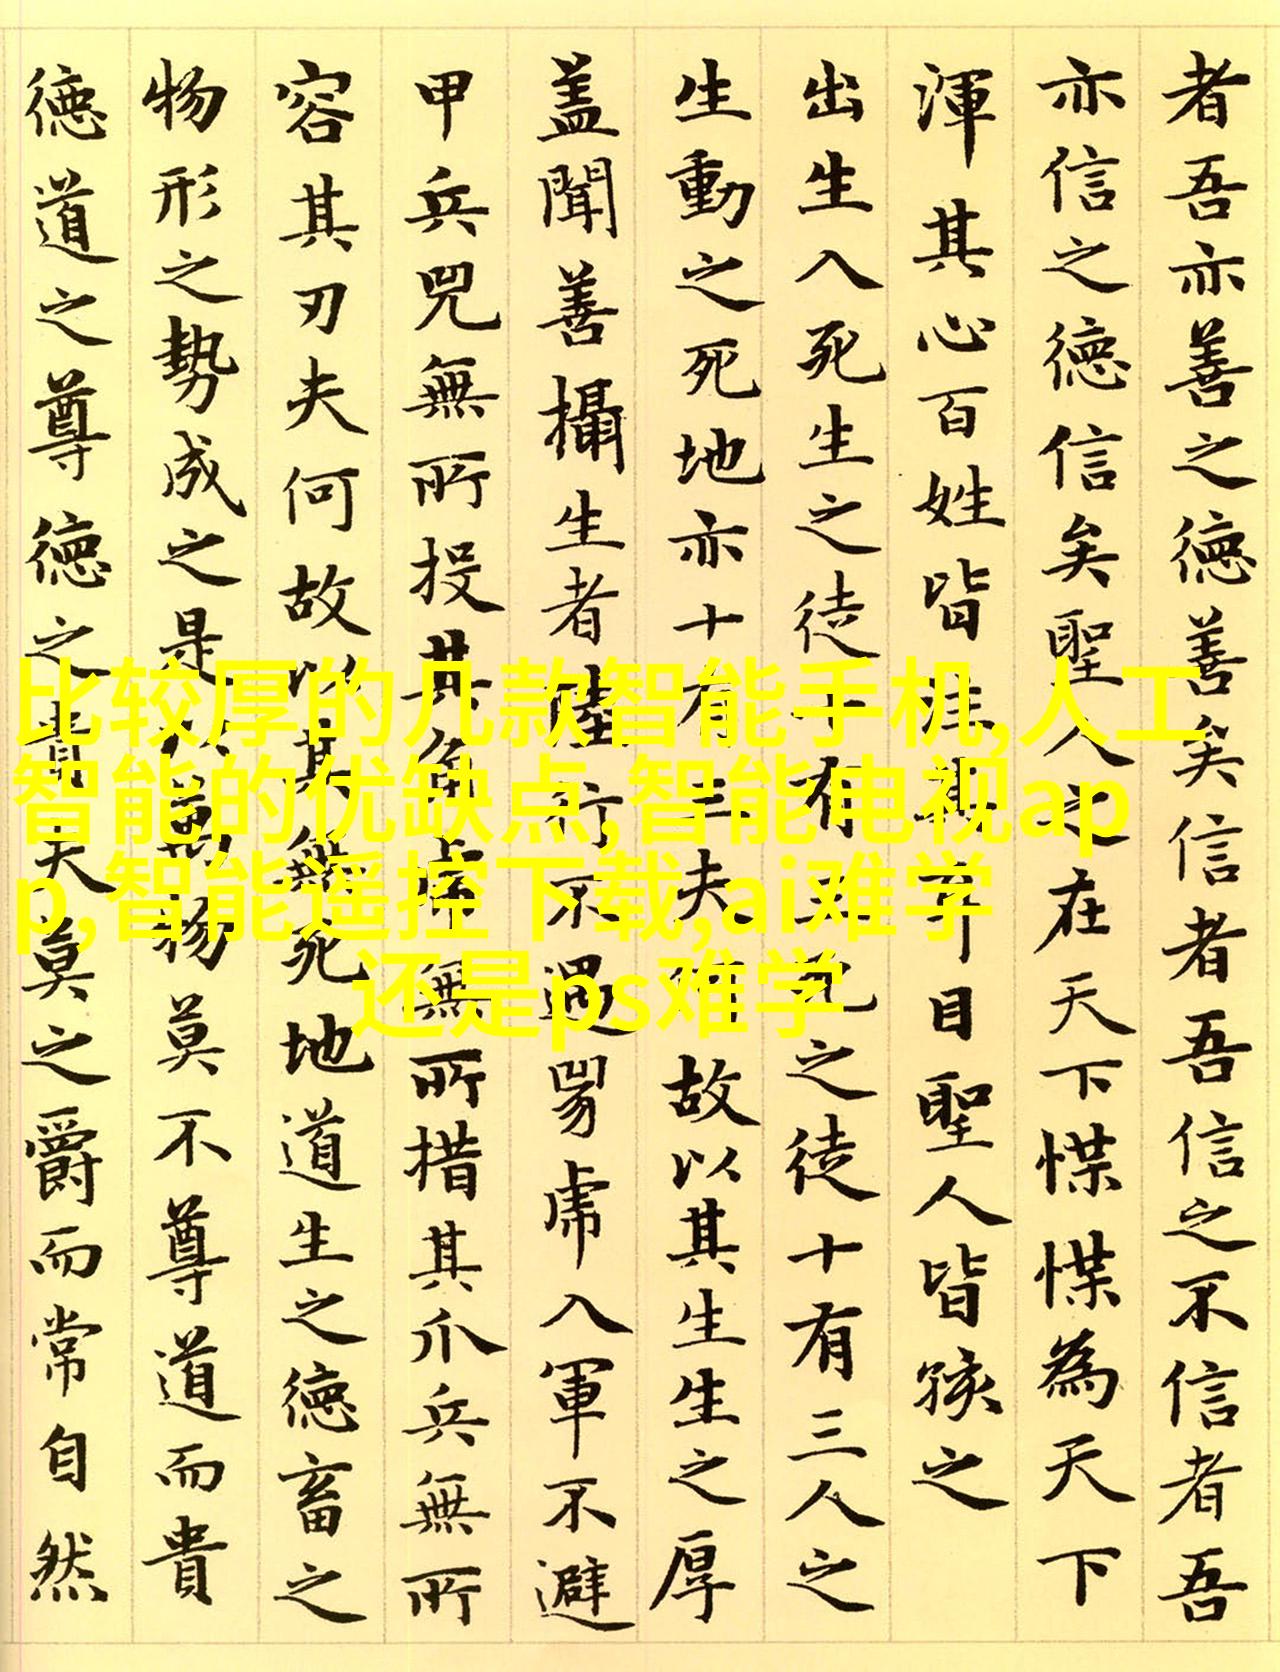 者吾亦善之德善矣信者吾信之不信者吾
亦信之德信矣聖人之在天下惵惵為天下
渾其心百姓皆注其耳目聖人皆孩之
出生入死生之徒十有三死之徒十有三人之
生動之死地亦十有三夫何故以其生生之厚
蓋聞善攝生者陸行不遇兕虎入軍不避
甲兵兕無所投其角虎無所措其爪兵無所
容其刃夫何故以其無死地道生之德畜之
物形之勢成之是以萬物莫不尊道而貴
德道之尊德之貴夫莫之爵而常自然
比较厚的几款智能手机,人工
智能的优缺点,智能电视ap
p,智能遥控下载,ai难学
还是ps难学